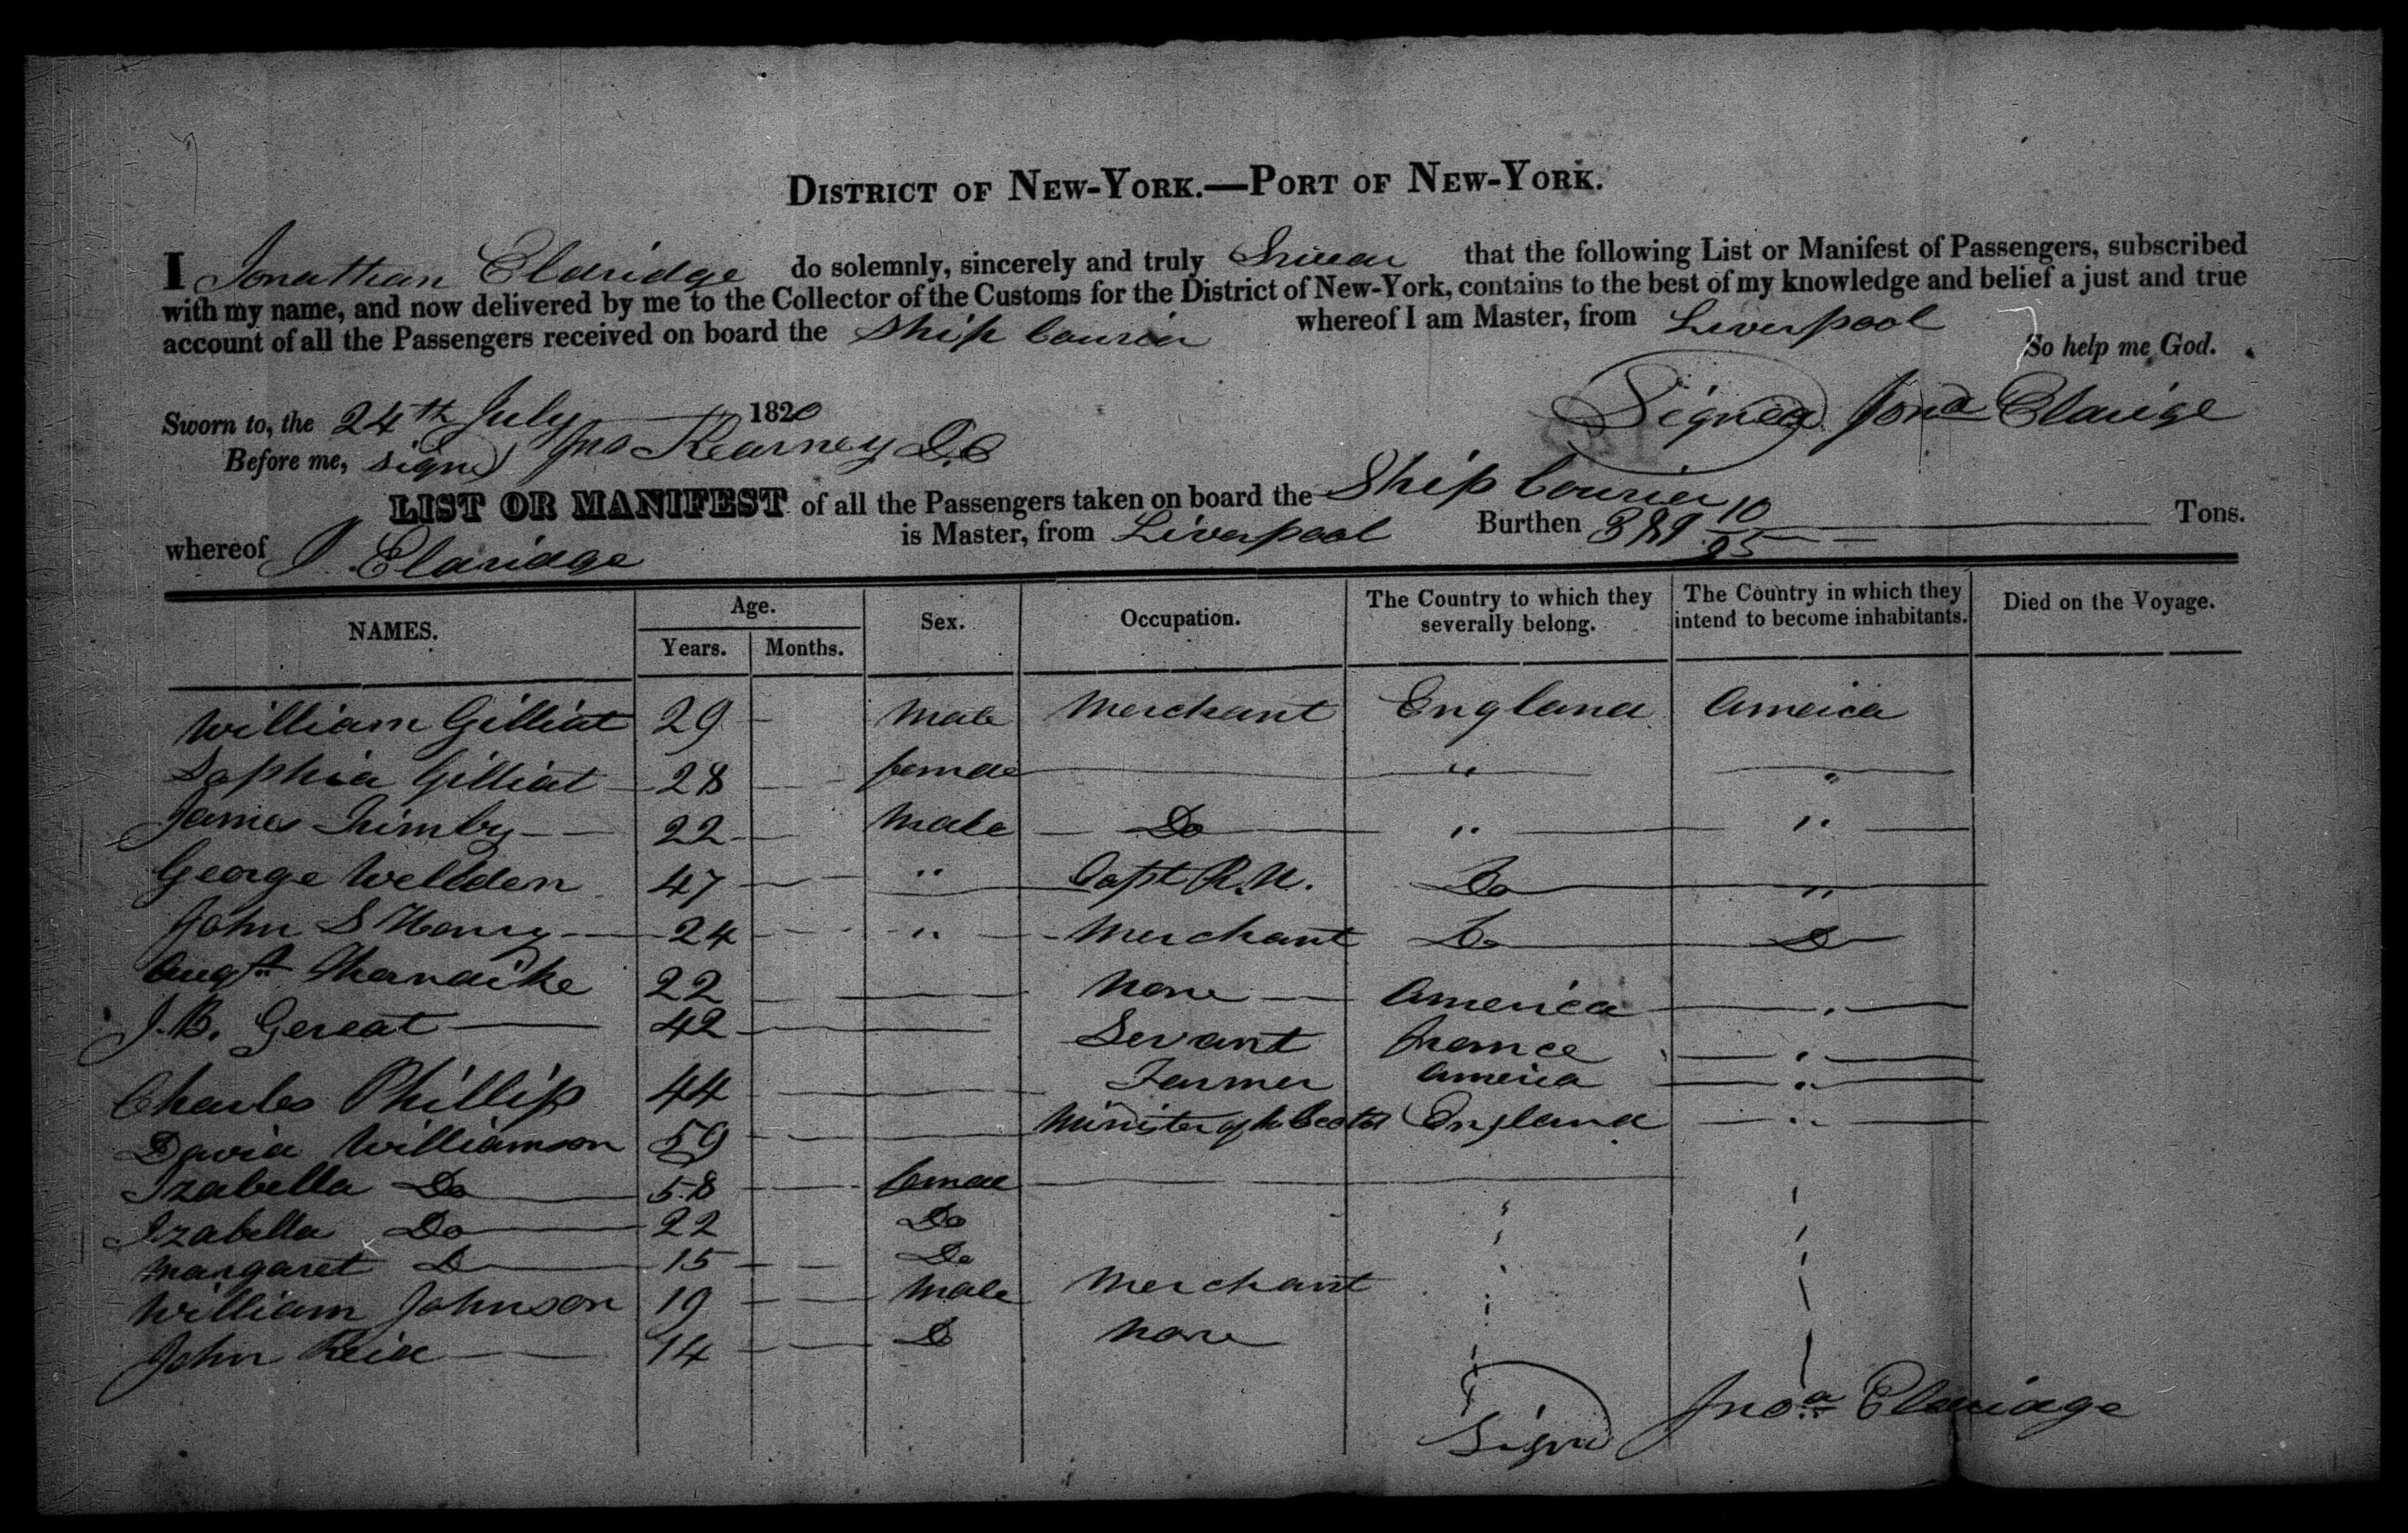 DISTRICT OF NEW-YORK.—PORT OF NEW-YORK.
I Jonathan Eldridge do solemnly, sincerely and truly Swear that the following List or Manifest of Passengers, subscribed
with my name, and now delivered by me to the Collector of the Customs for the District of New-York, contains to the best of my knowledge and belief a just and true
account of all the Passengers received on board the Ship Courier whereof I am Master, from Liverpool
So help me God.
Sworn to, the 24th July 1820 Signed Jona Eldridge
Before me, signd Jno Kearney D.C
LIST OR MANIFEST of all the Passengers taken on board the Ship Courier
whereof J. Eldridge is Master, from Liverpool Burthen 10/95 Tons.
NAMES. Age. Years. Months. Sex. Occupation. The Country to which they severally belong. The Country in which they intend to become inhabitants. Died on the Voyage.
William Gilliat 29 — Male Merchant England America
Sophia Gilliat 28 — female — " "
James 22 — Male Do " "
George Wellden 47 — " Capt R.N. Do "
John S Henry 24 — " Merchant Do Do
Augt Thorndike 22 — None America "
J.B. Gereat 42 — Servant France "
Charles Phillip 44 — Farmer America "
David Williamson 59 — Minister of England "
Izabella Do 58 — female
Izabella Do 22 Do
Margaret Do 15 — Do
William Johnson 19 — Male Merchant
John Reid 14 — Do None
Signd Jnoa Eldridge